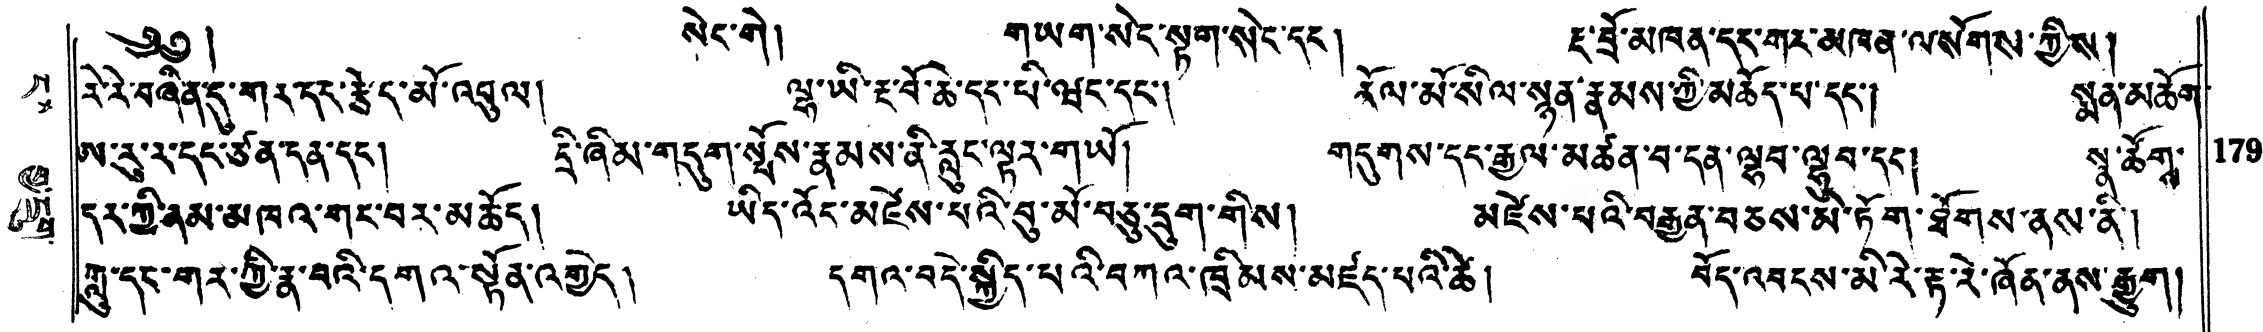 ༄༅། སེང་གེ། གཡག་སེང་སྟག་སེང་དང་། རྔ་བྲོ་མཁན་དང་གར་མཁན་ལ་སོགས་ཀྱིས།
རེ་རེ་བཞིན་དུ་གར་དང་རྩེད་མོ་འབུལ། ལྷ་ཡི་རྔ་བོ་ཆེ་དང་པི་ཝང་དང་། རོལ་མོ་སིལ་སྙན་རྣམས་ཀྱི་མཆོད་པ་དང་། སྨན་མཆོག་
ཨ་རུ་ར་དང་ཙན་དན་དང་། དྲི་ཞིམ་གདུག་སྤོས་རྣམས་ནི་རླུང་ལྟར་གཡོ། གདུགས་དང་རྒྱལ་མཚན་བ་དན་ལྷབ་ལྷུབ་དང་། སྣ་ཚོགྶ་ 179
དར་ཀྱི་ནམ་མཁའ་གང་བར་མཆོད། ཡིད་འོང་མཛེས་པའི་བུ་མོ་བཅུ་དྲུག་གིས། མཛེས་པའི་བརྒྱན་བཅས་མེ་ཏོག་ཐོགས་ནས་ནི།
ཀླུ་དང་གར་ཀྱི་རྣ་བའི་དགའ་སྟོན་འགྱེད། དགའ་བདེ་སྐྱིད་པའི་བཀའ་ཁྲིམས་མཛད་པའི་ཚེ། བོད་འབངས་མི་རེ་རྟ་རེ་ཞོན་ནས་རྒྱུག།